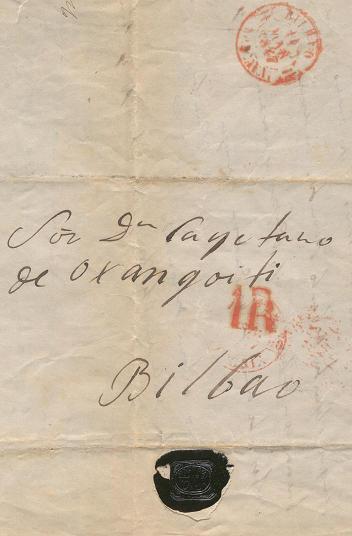 BILBAO
Sor Dn Cayetano
de Oxangoiti
1R
Bilbao